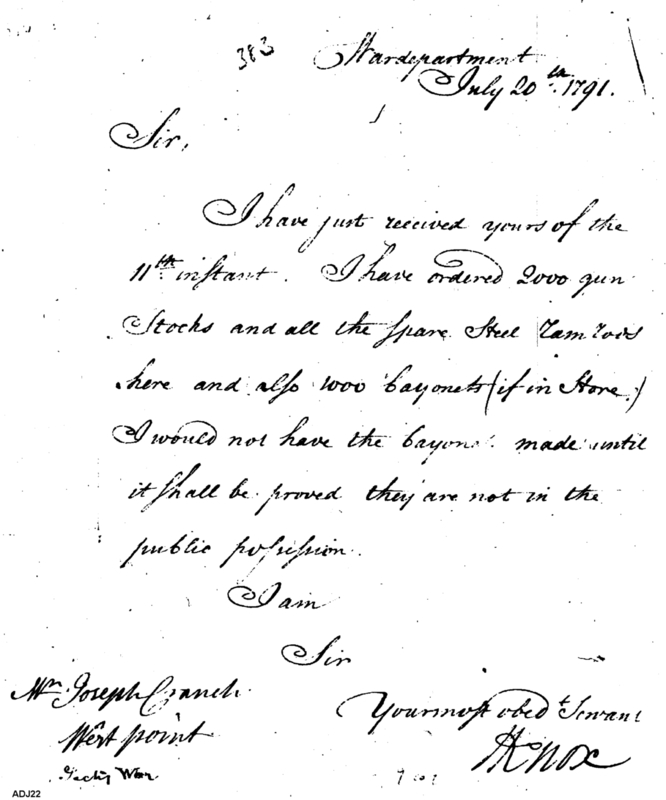 383
Wardepartment
July 20th. 1791.
Sir,
I have just received yours of the
11th instant. I have ordered 2000 gun
Stocks and all the spare Steel ramrods
here and also 1000 bayonets (if in Store.)
I would not have the bayon made until
it shall be proved they are not in the
public possession.
I am
Sir
Mr. Joseph Cranch.
West point
Your most obedt. Servant
HKnox
ADJ22